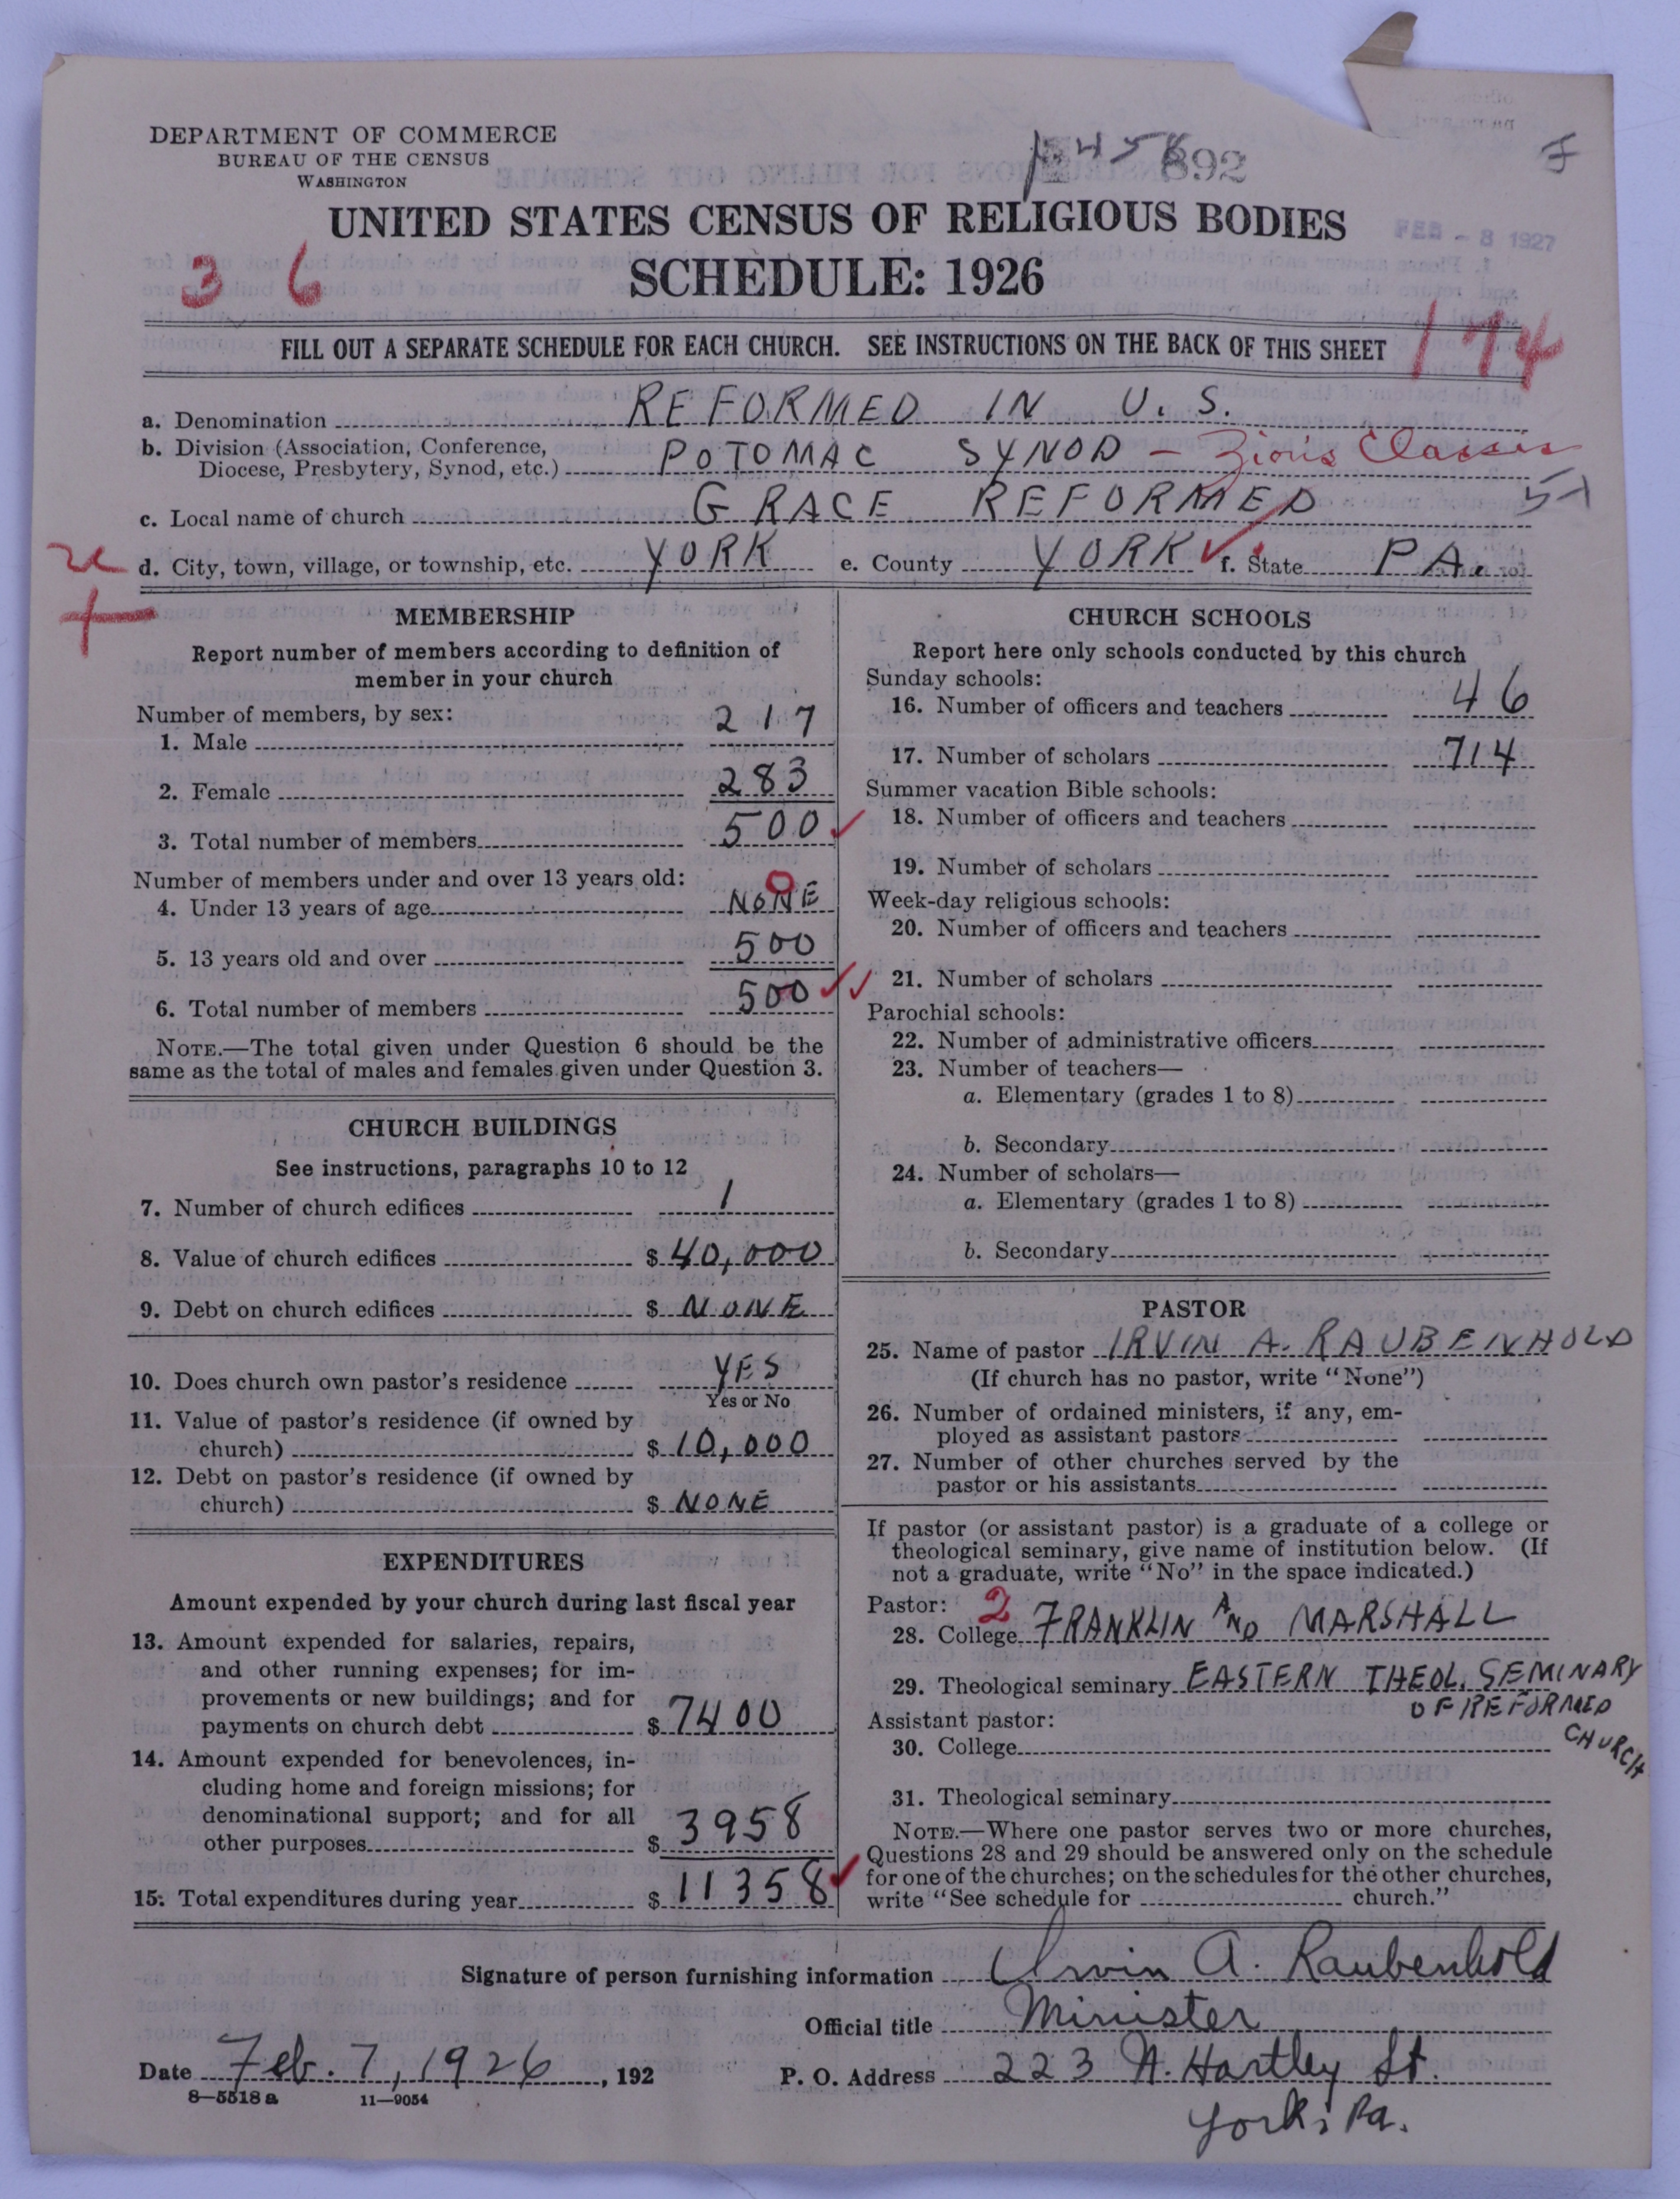 DEPARTMENT OF COMMERCE
BUREAU OF THE CENSUS
WASHINGTON
892
UNITED STATES CENSUS OF RELIGIOUS BODIES
FEB - 8 1927
SCHEDULE: 1926
3 6
FILL OUT A SEPARATE SCHEDULE FOR EACH CHURCH. SEE INSTRUCTIONS ON THE BACK OF THIS SHEET
174
a. Denomination REFORMED IN U. S.
b. Division (Association, Conference, Diocese, Presbytery, Synod, etc.) POTOMAC SYNOD – Zion's Classis
c. Local name of church GRACE REFORMED
d. City, town, village, or township, etc. YORK e. County YORK f. State PA.
MEMBERSHIP
Report number of members according to definition of
member in your church
Number of members, by sex:
1. Male 217
2. Female 283
3. Total number of members 500
Number of members under and over 13 years old:
4. Under 13 years of age NONE 0
5. 13 years old and over 500
6. Total number of members 500
NOTE.—The total given under Question 6 should be the
same as the total of males and females given under Question 3.
CHURCH BUILDINGS
See instructions, paragraphs 10 to 12
7. Number of church edifices 1
8. Value of church edifices $ 40,000
9. Debt on church edifices $ NONE
10. Does church own pastor's residence YES
Yes or No
11. Value of pastor's residence (if owned by
church) $ 10,000
12. Debt on pastor's residence (if owned by
church) $ NONE
EXPENDITURES
Amount expended by your church during last fiscal year
13. Amount expended for salaries, repairs,
and other running expenses; for im-
provements or new buildings; and for
payments on church debt $ 7400
14. Amount expended for benevolences, in-
cluding home and foreign missions; for
denominational support; and for all
other purposes $ 3958
15. Total expenditures during year $ 11358
CHURCH SCHOOLS
Report here only schools conducted by this church
Sunday schools:
16. Number of officers and teachers 46
17. Number of scholars 714
Summer vacation Bible schools:
18. Number of officers and teachers
19. Number of scholars
Week-day religious schools:
20. Number of officers and teachers
21. Number of scholars
Parochial schools:
22. Number of administrative officers
23. Number of teachers—
a. Elementary (grades 1 to 8)
b. Secondary
24. Number of scholars—
a. Elementary (grades 1 to 8)
b. Secondary
PASTOR
25. Name of pastor IRVIN A. RAUBENHOLD
(If church has no pastor, write "None")
26. Number of ordained ministers, if any, em-
ployed as assistant pastors
27. Number of other churches served by the
pastor or his assistants
If pastor (or assistant pastor) is a graduate of a college or
theological seminary, give name of institution below. (If
not a graduate, write "No" in the space indicated.)
Pastor: 2
28. College FRANKLIN AND MARSHALL
29. Theological seminary EASTERN THEOL. SEMINARY
OF REFORMED
CHURCH
Assistant pastor:
30. College
31. Theological seminary
NOTE.—Where one pastor serves two or more churches,
Questions 28 and 29 should be answered only on the schedule
for one of the churches; on the schedules for the other churches,
write "See schedule for church."
Signature of person furnishing information Irvin A. Raubenhold
Official title Minister
Date Feb. 7, 1926, 192 P. O. Address 223 N. Hartley St.
York, Pa.
8—5518 a 11—9054